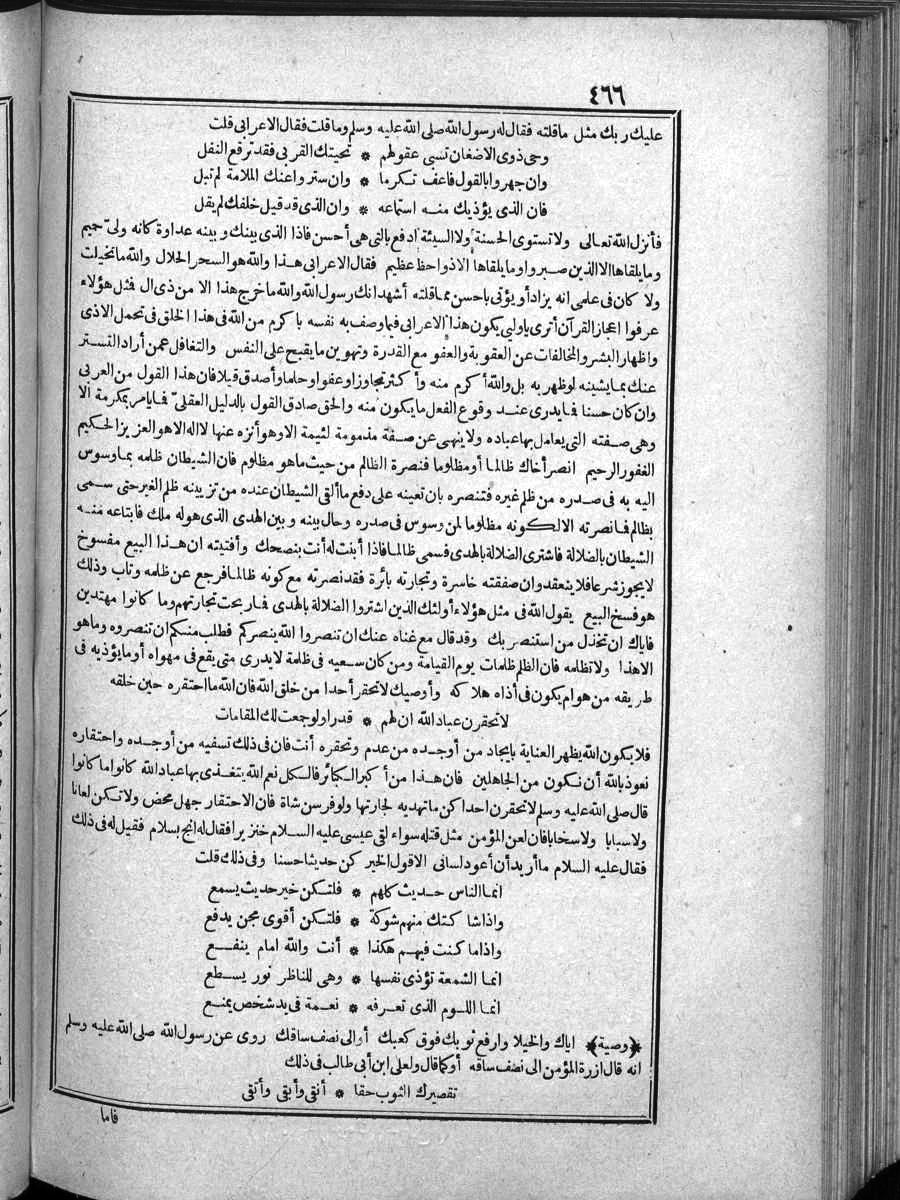 ٤٦٦
عليك ربك مثل ماقلته فقال له رسول الله صلى الله عليه وسلم وماقلت فقال الاعرابى قلت
وحى ذوى الاضغان تسبى عقولهم * تحيتك القربى فقد ترفع النغل
وان جهروا بالقول فاعف تكرما * وان ستروا عنك الملامة لم تبل
فان الذى يؤذيك منه استماعه * وان الذى قد قيل خلفك لم يقل
فأنزل الله تعالى ولا تستوى الحسنة ولا السيئة ادفع بالتى هى أحسن فاذا الذى بينك وبينه عداوة كانه ولىّ حميم
وما يلقاها الا الذين صبروا وما يلقاها الا ذو حظ عظيم فقال الاعرابى هذا والله هو السحر الحلال والله ما تخيلت
ولا كان فى علمى انه يزاد أو يؤتى باحسن مما قلته أشهد انك رسول الله والله ما خرج هذا الا من ذى ال فمثل هؤلاء
عرفوا اعجاز القرآن أترى ياولى يكون هذا الاعرابى فيما وصف به نفسه باكرم من الله فى هذا الخلق فى تحمل الاذى
واظهار البشر والمخالفات عن العقوبة والعفو مع القدرة وتهوين ما يقبح على النفس والتغافل عمن أراد التستر
عنك بما يشينه لو ظهر به بل والله أكرم منه وأكثر تجاوزا وعفوا وحلما وأصدق قيلا فان هذا القول من العربى
وان كان حسنا فما يدرى عند وقوع الفعل ما يكون منه والحق صادق القول بالدليل العقلىّ فما يامر بمكرمة الا
وهى صفته التى يعامل بها عباده ولا ينهى عن صفة مذمومة لئيمة الا وهو أنزه عنها لا اله الا هو العزيز الحكيم
الغفور الرحيم انصر أخاك ظالما أو مظلوما فنصرة الظالم من حيث ما هو مظلوم فان الشيطان ظلمه بما وسوس
اليه به فى صدره من ظلم غيره فتنصره بان تعينه على دفع ما ألقى الشيطان عنده من تزيينه ظلم الغير حتى سمى
بظالم فما نصرته الا لكونه مظلوما لمن وسوس فى صدره وحال بينه وبين الهدى الذى هو له ملك فابتاعه منه
الشيطان بالضلالة فاشترى الضلالة بالهدى فسمى ظالما فاذا أبنت له أنت بنصحك وأفتيته ان هذا البيع مفسوخ
لا يجوز شرعا فلا ينعقد وان صفقته خاسرة وتجارته بائرة فقد نصرته مع كونه ظالما فرجع عن ظلمه وتاب وذلك
هو فسخ البيع يقول الله فى مثل هؤلاء أولئك الذين اشتروا الضلالة بالهدى فما ربحت تجارتهم وما كانوا مهتدين
فاياك ان تخذل من استنصر بك وقد قال مع غناه عنك ان تنصروا الله ينصركم فطلب منكم ان تنصروه وما هو
الا هذا ولا تظلمه فان الظلم ظلمات يوم القيامة ومن كان سعيه فى ظلمة لا يدرى متى يقع فى مهواه أو ما يؤذيه فى
طريقه من هوام يكون فى أذاه هلاكه وأوصيك لا تحقر أحدا من خلق الله فان الله ما احتقره حين خلقه
لا تحقرن عباد الله ان لهم * قدرا ولو جمعت لك المقامات
فلا يكون الله يظهر العناية بايجاد من أوجده من عدم وتحقره أنت فان فى ذلك تسفيه من أوجده واحتقاره
نعوذ بالله أن نكون من الجاهلين فان هذا من أكبر الكبائر فالكل نعم الله يتغذى بها عباد الله كانوا ما كانوا
قال صلى الله عليه وسلم لا تحقرن احداكن ما تهديه لجارتها ولو فرسن شاة فان الاحتقار جهل محض ولا تكن لعانا
ولا سبابا ولا سخابا فان لعن المؤمن مثل قتله سواء لقى عيسى عليه السلام خنزيرا فقال له انج بسلام فقيل له فى ذلك
فقال عليه السلام ما أريد أن أعود لسانى الا قول الخير كن حديثا حسنا وفى ذلك قلت
انما الناس حديث كلهم * فلتكن خير حديث يسمع
واذا شاكتك منهم شوكة * فلتكن أقوى مجن يدفع
واذا ما كنت فيهم هكذا * أنت والله امام ينفع
انما الشمعة تؤذى نفسها * وهى للناظر نور يسطع
انما اللوم الذى تعرفه * نعمة فى يد شخص يمنع
﴿وصية﴾ اياك والخيلا وارفع ثوبك فوق كعبك أو الى نصف ساقك روى عن رسول الله صلى الله عليه وسلم
انه قال ازرة المؤمن الى نصف ساقه أو كما قال ولعلى ابن أبى طالب فى ذلك
تقصيرك الثوب حقا * أنقى وأبقى وأتقى
فاما